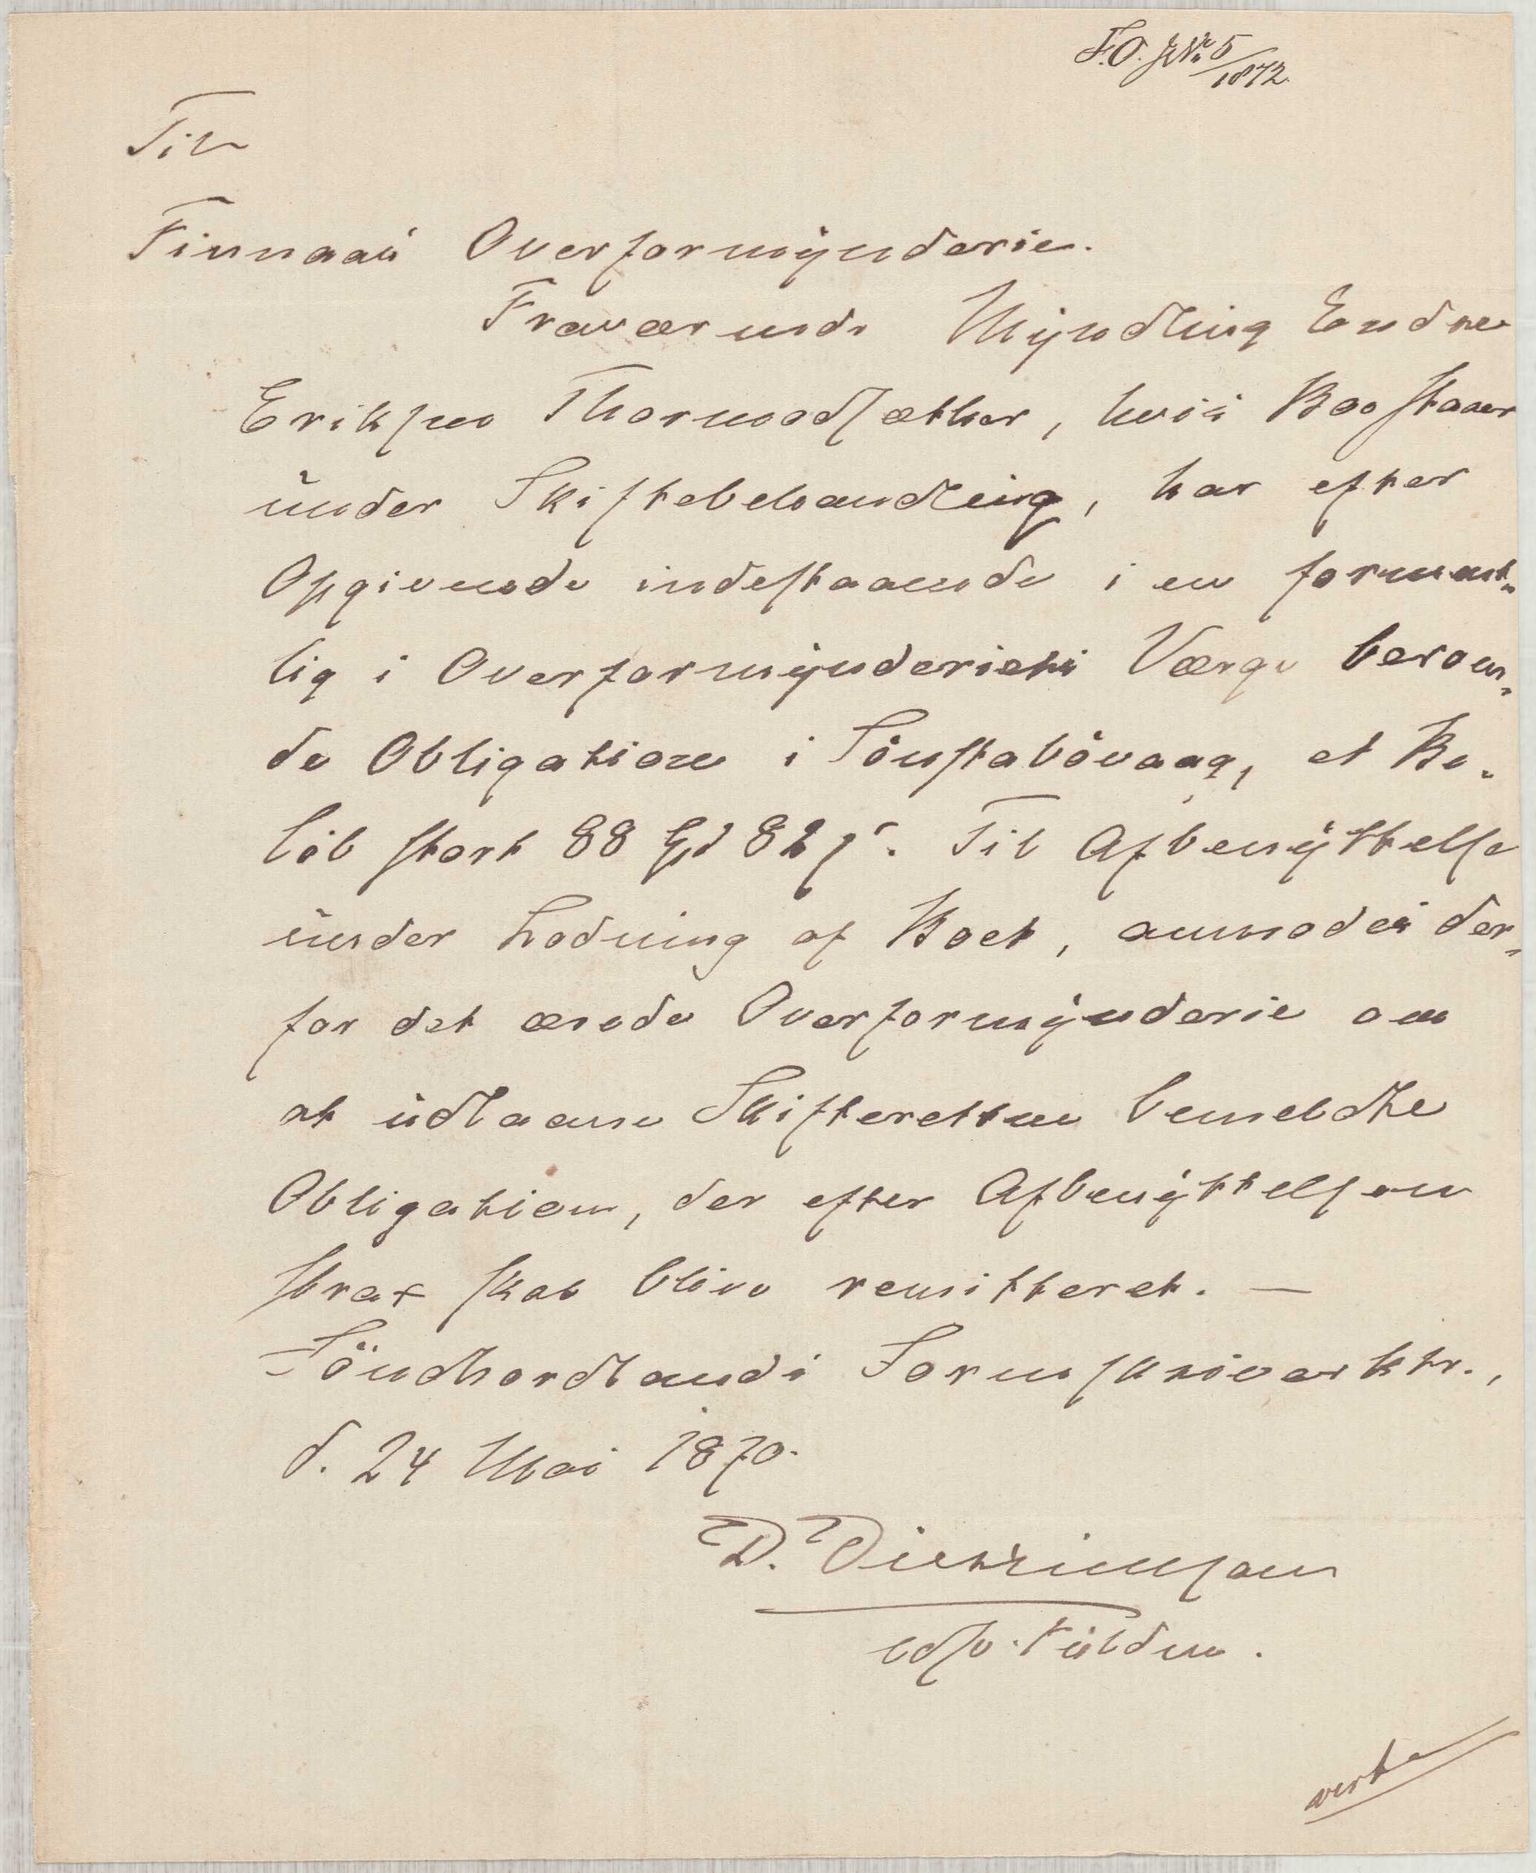 F.O. JNo 5/1872
Til
Finnaas Overformynderie.
Fraværende Myndling Endre
Eriksen Thormodsæther, hvis Bo staaer
under Skiftebehandling, har efter
Opgivende indestaaende i en forment-
lig i Overformynderiets Værge beroen-
de Obligation i Sönstabövaag, et Be-
löb stort 88 Spd 82 s. Til Afbenyttelse
under Lodning af Boet, anmodes der-
for det ærede Overformynderie om
at udlaane Skifteretten bemeldte
Obligation, der efter Afbenyttelsen
strax skal blive remitteret. —
Söndhordlands Sorenskriverktr.,
d. 24 Mai 1870.
D. Dietrichson
edsv. Fuldm.
verte